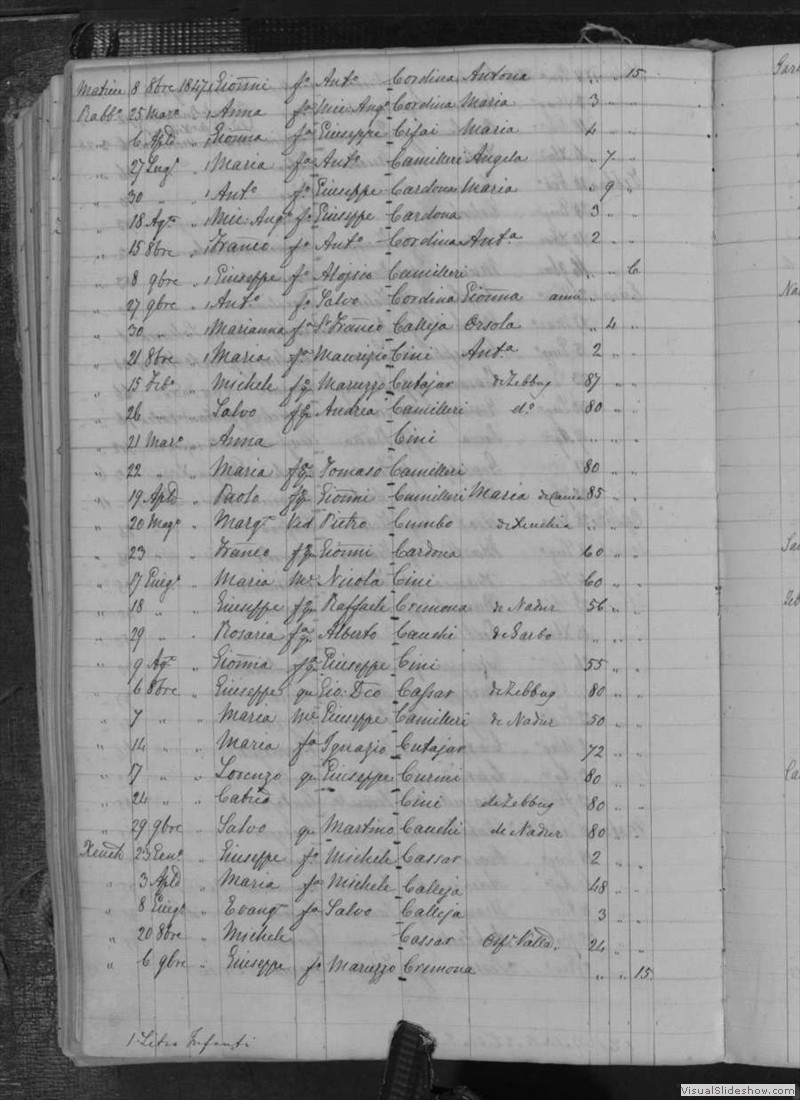 Matrice 8 8bre 1847 1 Gionni fo Anto Cordina Antona " " 15
Rabbo 25 Maro 1 Anna fa Mic: Ango Cordina Maria 3 " "
" 6 Aple " 1 Gionna fa Giuseppe Cifai Maria 4 " "
" 27 Lugo " 1 Maria fa Anto Camilleri Angela " 7 "
" 30 " " 1 Anto fo Giuseppe Cardona Maria " 9 "
" 18 Ago " 1 Mic: Ango fo Giuseppe Cardona 3 " "
" 15 8bre 1 Franco fo Anto Cordina Anta 2 " "
" 8 9bre 1 Giuseppe fo Aloisio Camilleri " " 6
" 27 9bre 1 Anto fo Salvo Cordina Gionna " "
" 30 " " 1 Marianna fa Franco Calleja Orsola " 4 "
" 21 8bre 1 Maria fa Maurizio Cini Anta 2 " "
" 15 Febo " Michele fo qm Maruzzo Cutajar de Zebbug 87 " "
" 26 " " Salvo fo qm Andrea Camilleri do 80 " "
" 21 Maro " Anna Cini " " "
" 22 " " Maria fa qm Tomaso Camilleri 80 " "
" 19 Aple " Paolo fo qm Gionni Camilleri Maria 85 " "
" 20 Mago " Margta Ved Pietro Cumbo de Xeuchia " " "
" 23 " " Franco fo qm Gionni Cardona 60 " "
" 17 Giugo " Maria Me Nicola Cini 60 " "
" 18 " " Giuseppe fo qm Raffaele Cremona de Nadur 56 " "
" 29 " " Rosaria fa qm Alberto Cauchi de Garbo " " "
" 9 Ago " Gionna fa qm Giuseppe Cini 55 " "
" 6 8bre " Giuseppe qm Gio: Dco Cassar de Zebbug 80 " "
" 7 " " Maria Me Giuseppe Camilleri de Nadur 50 " "
" 14 " " Maria fa Ignazio Cutajar 72 " "
" 17 " " Lorenzo qm Giuseppe Curmi 80 " "
" 24 " " Catna Cini de Zebbug 80 " "
" 29 9bre " Salvo qm Martino Cauchi de Nadur 80 " "
Xeuch 23 Geno " Giuseppe fo Michele Cassar 2 " "
" 3 Aple " Maria fa Michele Calleja 48 " "
" 8 Giugo " Evangta fa Salvo Calleja 3 " "
" 20 8bre " Michele Cassar Osp. Valla. 24 " "
" 6 9bre " Giuseppe fo Maruzzo Cremona " " 15
1 Infanti
Gar
Na
Sa
Zeb
Ca
VisualSlideshow.com